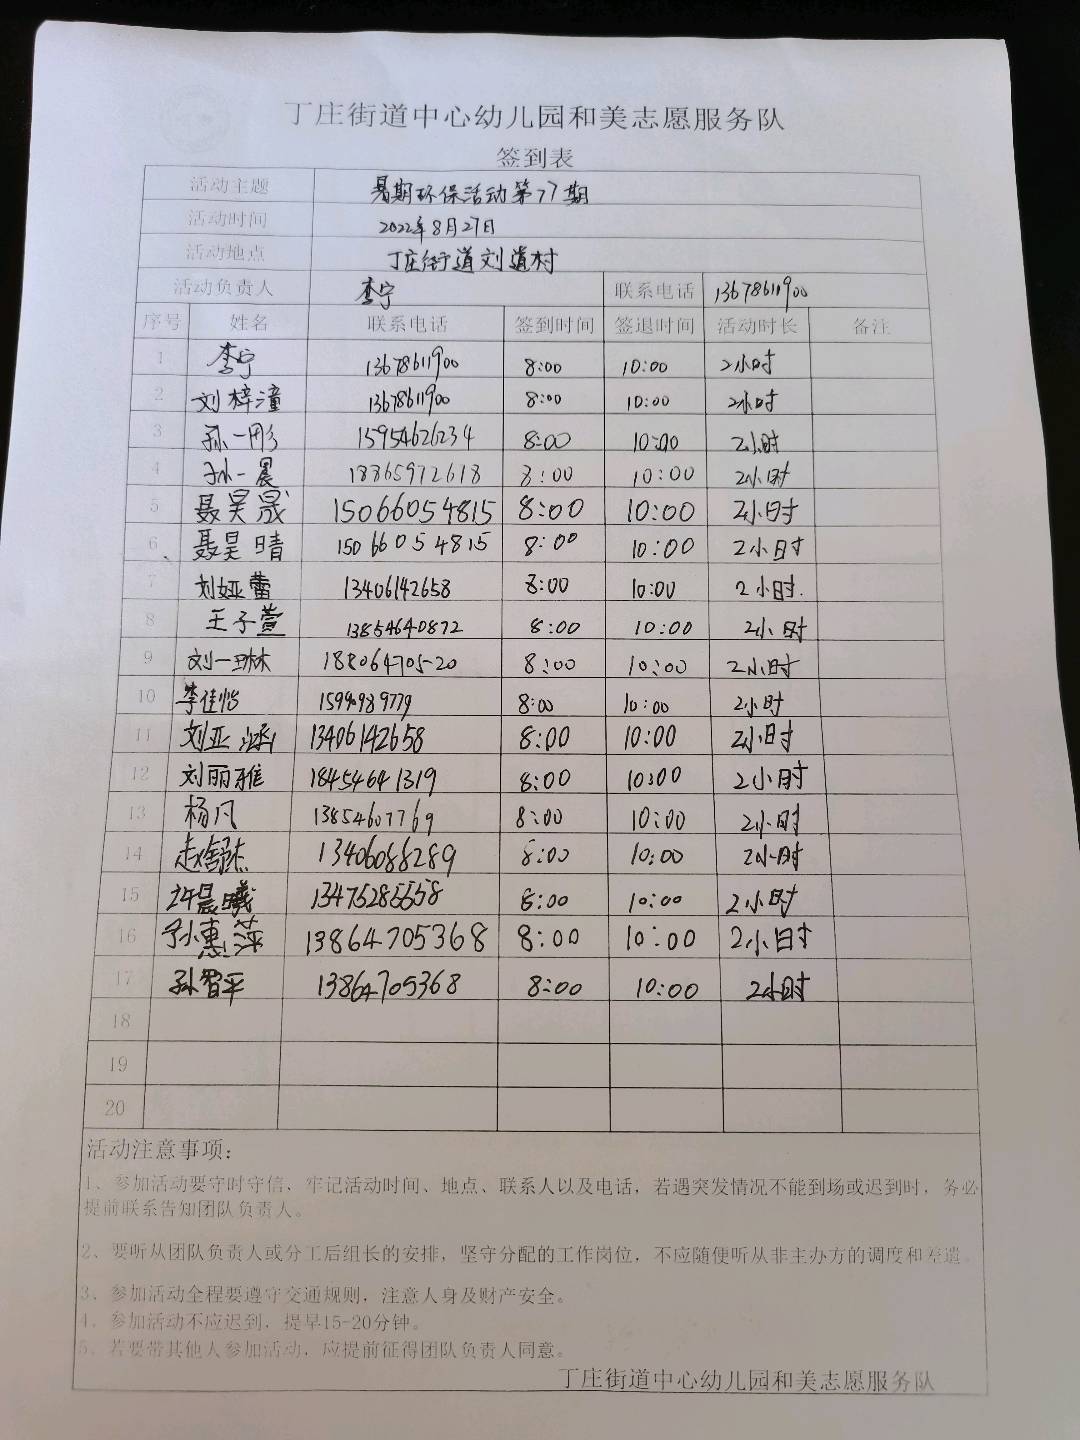 丁庄街道中心幼儿园和美志愿服务队
签到表
活动主题 暑期环保活动第77期
活动时间 2022年8月27日
活动地点 丁庄街道刘道村
活动负责人 李宁 联系电话 13678611900
序号 姓名 联系电话 签到时间 签退时间 活动时长 备注
1 李宁 13678611900 8:00 10:00 2小时
2 刘梓潼 13678611900 8:00 10:00 2小时
3 孙一彤 15954626234 8:00 10:00 2小时
4 孙一晨 18865972618 8:00 10:00 2小时
5 聂昊晟 15066054815 8:00 10:00 2小时
6 聂昊晴 15066054815 8:00 10:00 2小时
7 刘娅蕾 13406142658 8:00 10:00 2小时.
8 王子萱 13854640872 8:00 10:00 2小时
9 刘一琳 18806470520 8:00 10:00 2小时
10 李佳怡 8:00 10:00 2小时
11 刘亚涵 13406142658 8:00 10:00 2小时
12 刘丽雅 18454641319 8:00 10:00 2小时
13 杨凡 13854607769 8:00 10:00 2小时
14 赵舒杰 13406088289 8:00 10:00 2小时
15 许晨曦 8:00 10:00 2小时
16 孙惠萍 13864705368 8:00 10:00 2小时
17 孙智平 13864705368 8:00 10:00 2小时
18
19
20
活动注意事项：
1、参加活动要守时守信、牢记活动时间、地点、联系人以及电话，若遇突发情况不能到场或迟到时，务必
提前联系告知团队负责人。
2、要听从团队负责人或分工后组长的安排，坚守分配的工作岗位，不应随便听从非主办方的调度和差遣。
3、参加活动全程要遵守交通规则，注意人身及财产安全。
4、参加活动不应迟到，提早15-20分钟。
5、若要带其他人参加活动，应提前征得团队负责人同意。
丁庄街道中心幼儿园和美志愿服务队